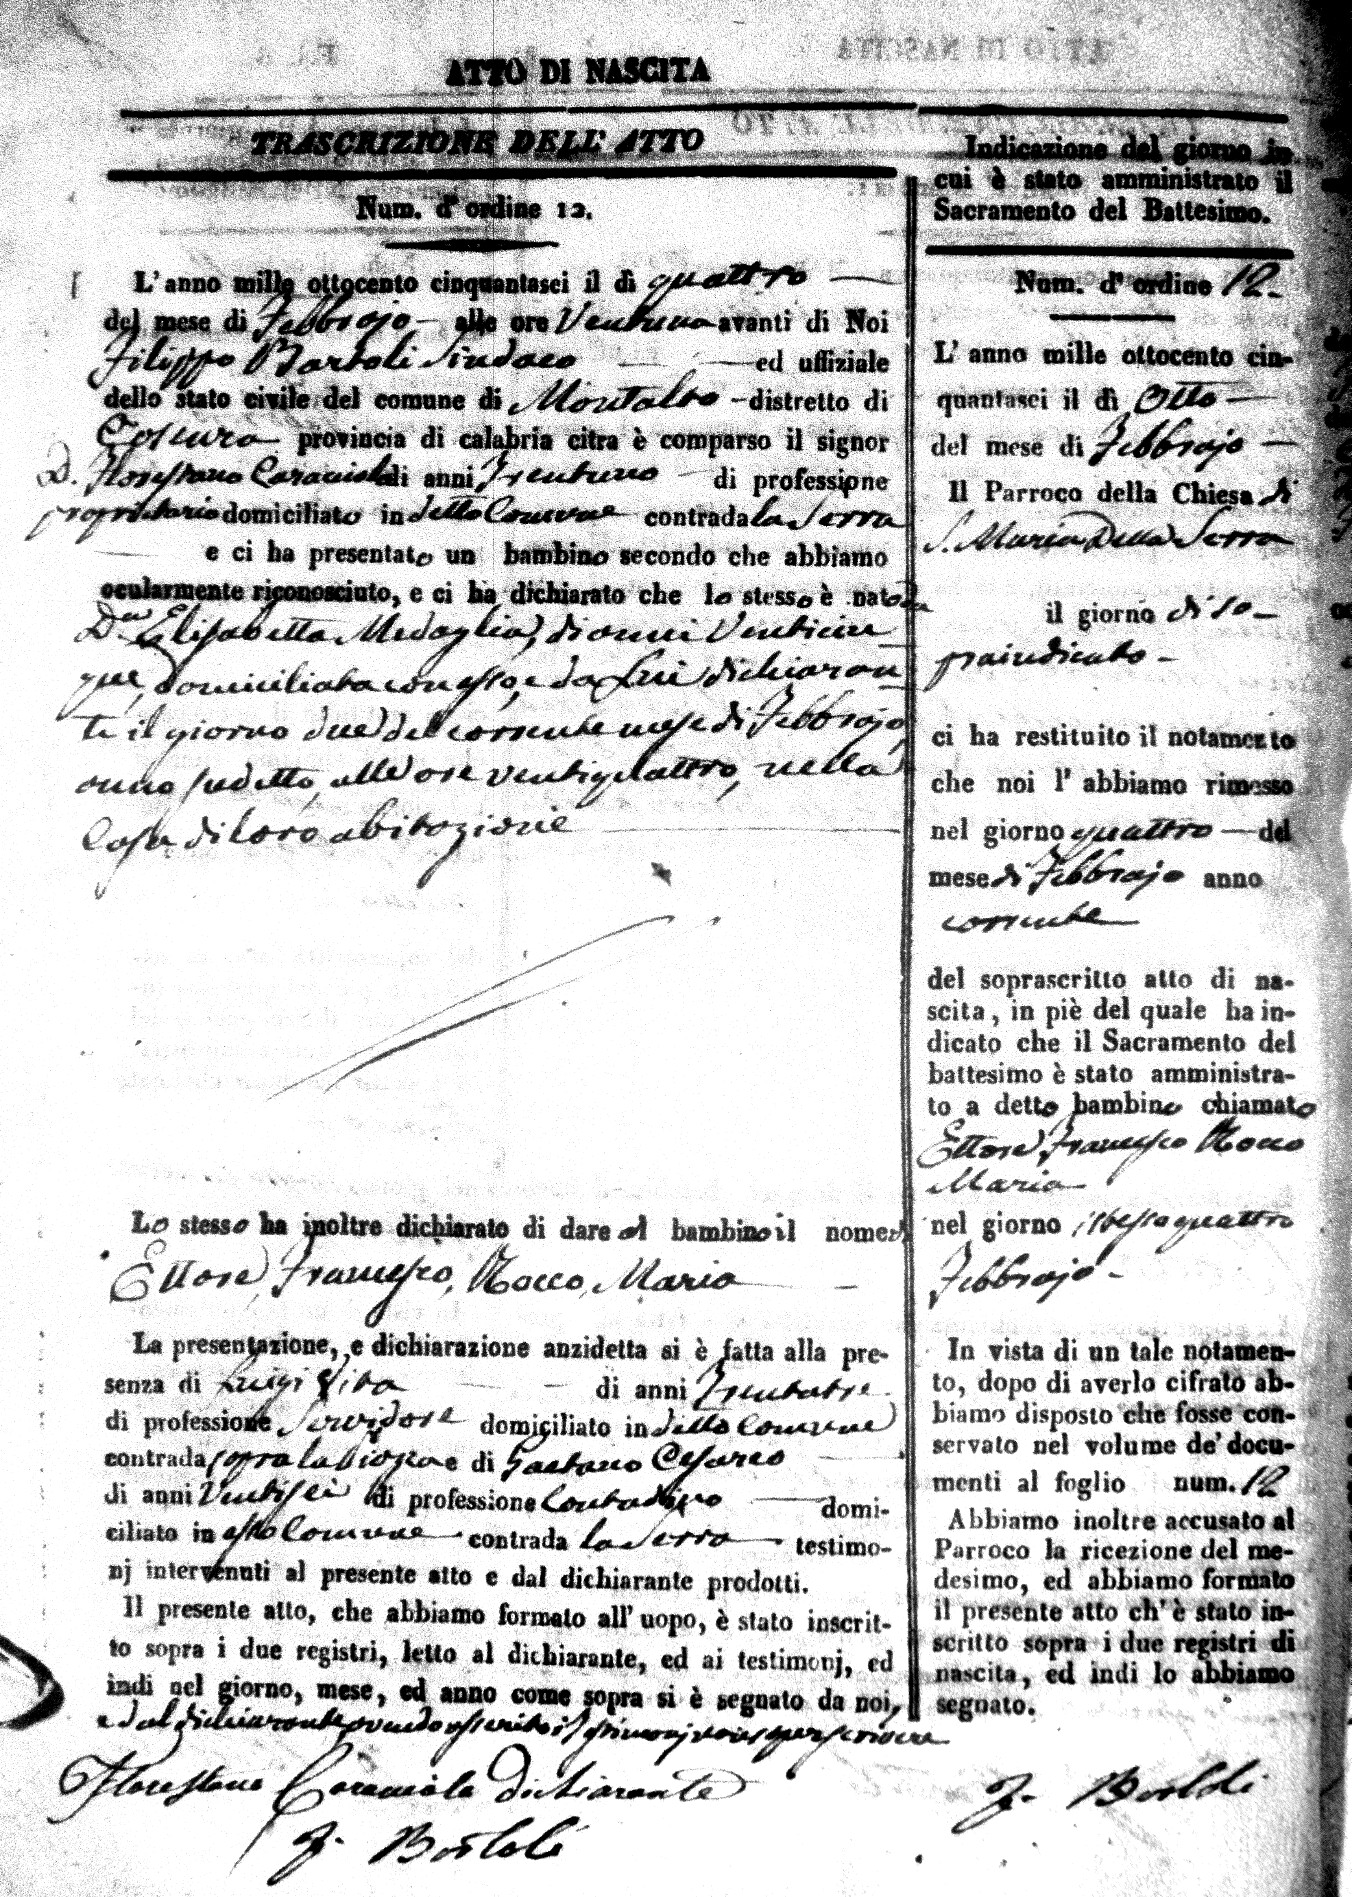 ATTO DI NASCITA
TRASCRIZIONE DELL' ATTO
Num. d' ordine 12.
L' anno mille ottocento cinquantasei il dì quattro
del mese di Febbrajo alle ore Ventuno avanti di Noi
Filippo Bartoli Sindaco ed uffiziale
dello stato civile del comune di Montalto distretto di
Cosenza provincia di calabria citra è comparso il signor
D. Florestano Caraciolo di anni Trentuno di professione
proprietario domiciliato in detto Comune contrada la Serra
e ci ha presentato un bambino secondo che abbiamo
ocularmente riconosciuto, e ci ha dichiarato che lo stesso è nato da
D.na Elisabetta Medaglia, di anni Venticin
que, domiciliata con esso, e da Lui dichiaran
te il giorno due del corrente mese di Febbrajo,
anno sudetto, alle ore ventiquattro, nella
Casa di loro abitazione
Lo stesso ha inoltre dichiarato di dare al bambino il nome di
Ettore, Francesco, Rocco, Maria
La presentazione, e dichiarazione anzidetta si è fatta alla pre-
senza di Luigi Vita di anni Trentatre
di professione Servidore domiciliato in detto Comune
contrada sopra la e di Gaetano Cesareo
di anni Ventisei di professione Contadino domi-
ciliato in esso Comune contrada la Serra testimo-
nj intervenuti al presente atto e dal dichiarante prodotti.
Il presente atto, che abbiamo formato all' uopo, è stato inscrit-
to sopra i due registri, letto al dichiarante, ed ai testimonj, ed
indi nel giorno, mese, ed anno come sopra si è segnato da noi,
e dal dichiarante avendo asserito i testimonj non saper scrivere
Florestano Caraciolo Dichiarante
F. Bartoli
Indicazione del giorno in
cui è stato amministrato il
Sacramento del Battesimo.
Num. d' ordine 12.
L' anno mille ottocento cin-
quantasei il dì Otto
del mese di Febbrajo
Il Parroco della Chiesa di
S. Maria Della Serra
il giorno di so-
praindicato
ci ha restituito il notamento
che noi l' abbiamo rimesso
nel giorno quattro del
mese di Febbrajo anno
corrente
del soprascritto atto di na-
scita, in piè del quale ha in-
dicato che il Sacramento del
battesimo è stato amministra-
to a detto bambino chiamato
Ettore Francesco Rocco
Maria
nel giorno istesso quattro
Febbrajo
In vista di un tale notamen-
to, dopo di averlo cifrato ab-
biamo disposto che fosse con-
servato nel volume de' docu-
menti al foglio num. 12
Abbiamo inoltre accusato al
Parroco la ricezione del me-
desimo, ed abbiamo formato
il presente atto ch' è stato in-
scritto sopra i due registri di
nascita, ed indi lo abbiamo
segnato.
F. Bartoli